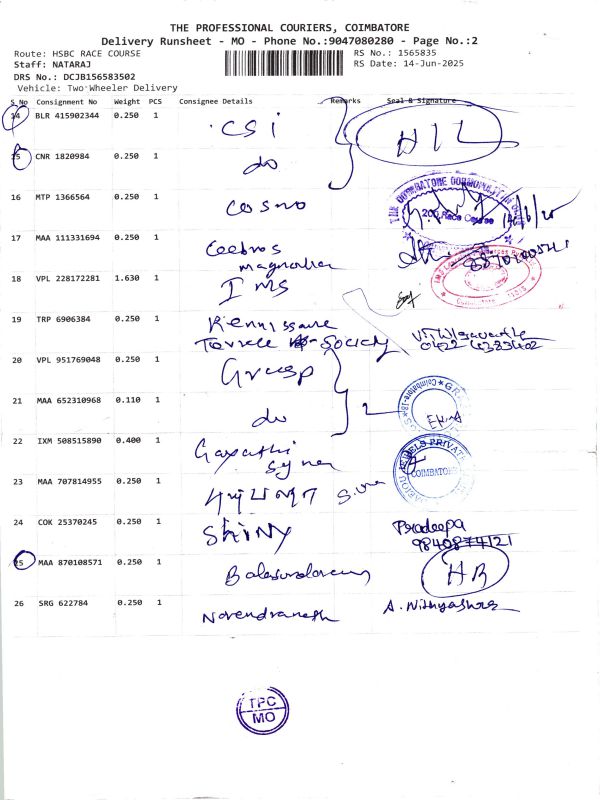 THE PROFESSIONAL COURIERS, COIMBATORE
Delivery Runsheet - MO - Phone No.:9047080280 - Page No.:2
Route: HSBC RACE COURSE
RS No.: 1565835
Staff: NATARAJ
RS Date: 14-Jun-2025
DRS No.: DCJB156583502
Vehicle: Two Wheeler Delivery
S.No Consignment No Weight PCS Consignee Details Remarks Seal & Signature
14 BLR 415902344 0.250 1 CSI HIL
15 CNR 1820984 0.250 1 do
16 MTP 1366564 0.250 1 Cosmo
200, Race Course
14/6/25
17 MAA 111331694 0.250 1
magnolia
18 VPL 228172281 1.630 1 IMS
19 TRP 6906384 0.250 1
Terrace Society
0422 4383402
20 VPL 951769048 0.250 1
21 MAA 652310968 0.110 1 do
Coimbatore-18
22 IXM 508515890 0.400 1 Gayathi
COIMBATORE
23 MAA 707814955 0.250 1
24 COK 25370245 0.250 1 Shiny Pradeepa
9840874121
25 MAA 870108571 0.250 1
26 SRG 622784 0.250 1
TPC
MO